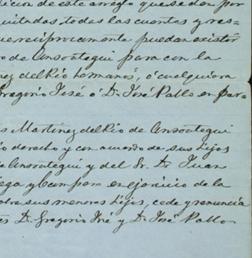 icion de este arreglo quedan por
quitadas todas las cuentas y res-
que recíprocamente puedan existir
o de Ansoategui para con la
nez del Rio hermanos, ó cualquiera
Gregorio José ó D. José Pablo en par

s Martinez del Rio de Ansoategui
io derecho y con acuerdo de sus hijos
de Ansoategui y del Sr. D. Juan
ega y Campom en ejercicio de la
sobre sus menores hijos, cede y renuncia
es D. Gregorio José y D. José Pablo